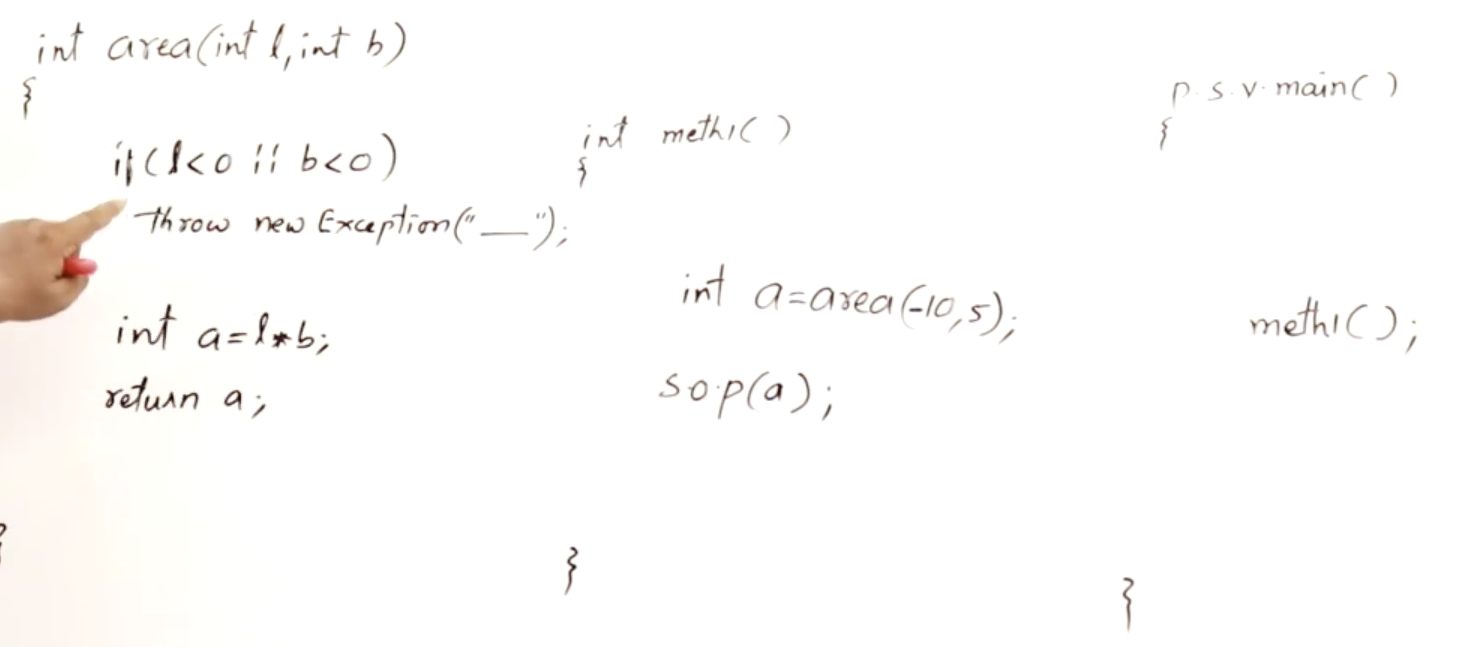 int area(int l, int b)
{
if(l<0 || b<0)
throw new Exception("—");
int a=l*b;
return a;
}
int meth1( )
{
int a=area(-10,5);
s.o.p(a);
}
p.s.v.main( )
{
meth1( );
}